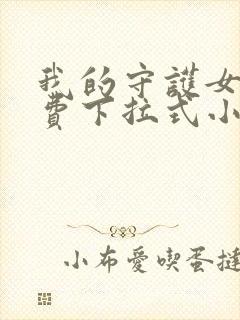 我的守護女
費下拉式小
小布愛喫蛋撻